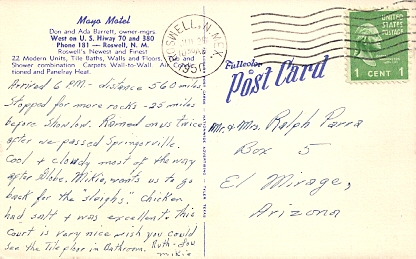 Maya Motel
Don and Ada Barrett, owner-mgrs.
West on U. S. Hiway 70 and 380
Phone 181 — Roswell, N. M.
Roswell's Newest and Finest
22 Modern Units, Tile Baths, Walls and Floors. Tub and
Shower combination. Carpets Wall-to-Wall. Air Condi-
tioned and Panelray Heat.
Arrived 6 P.M. - distance 560 miles
Stopped for more rocks - 25 miles
before Showlow. Rained on us twice
after we passed Springerville.
Cool + cloudy most of the way
after Globe. Mikie, wants us to go
back for the "sleighs". Chicken
had salt + was excellent. This
Court is very nice wish you could
see the Tile floor in Bathroom. Ruth-Lou
Mikie
ROSWELL, N. MEX.
1950
Fullcolor
Post Card
UNITED STATES POSTAGE
1 CENT 1
Mr. & Mrs. Ralph Parra
Box 5
El Mirage,
Arizona